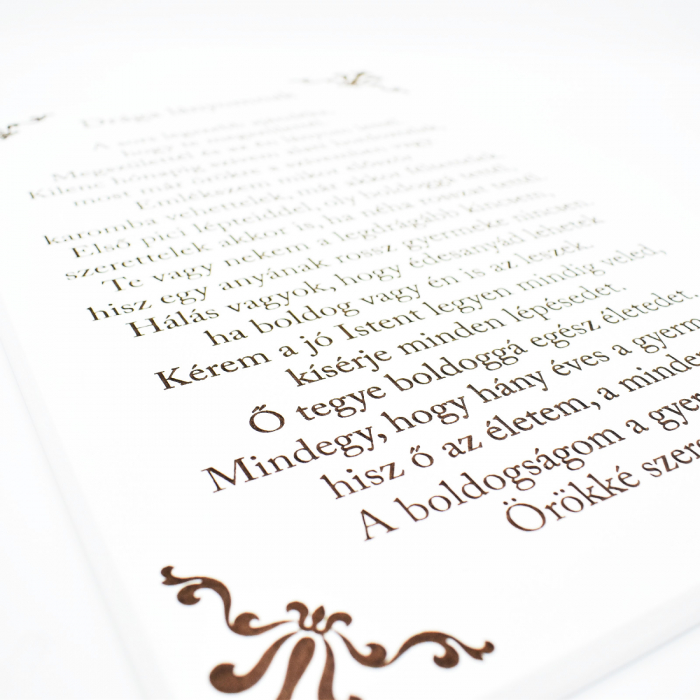 Drága lányomnak
Kilenc hónapig
most már örökre a szívemben vagy.
Emlékszem mikor először
karomba vehettelek, már akkor
Első pici lépteiddel oly boldoggá tettél,
szerettelek akkor is, ha néha rosszat tettél.
Te vagy nekem a legdrágább kincsem,
hisz egy anyának rossz gyermeke nincsen.
Hálás vagyok, hogy édesanyád lehetek
ha boldog vagy én is az leszek.
Kérem a jó Istent legyen mindig veled,
kísérje minden lépésedet.
Ő tegye boldoggá egész életedet
Mindegy, hogy hány éves a gyerm
hisz ő az életem, a minde
A boldogságom a gyer
Örökké szer